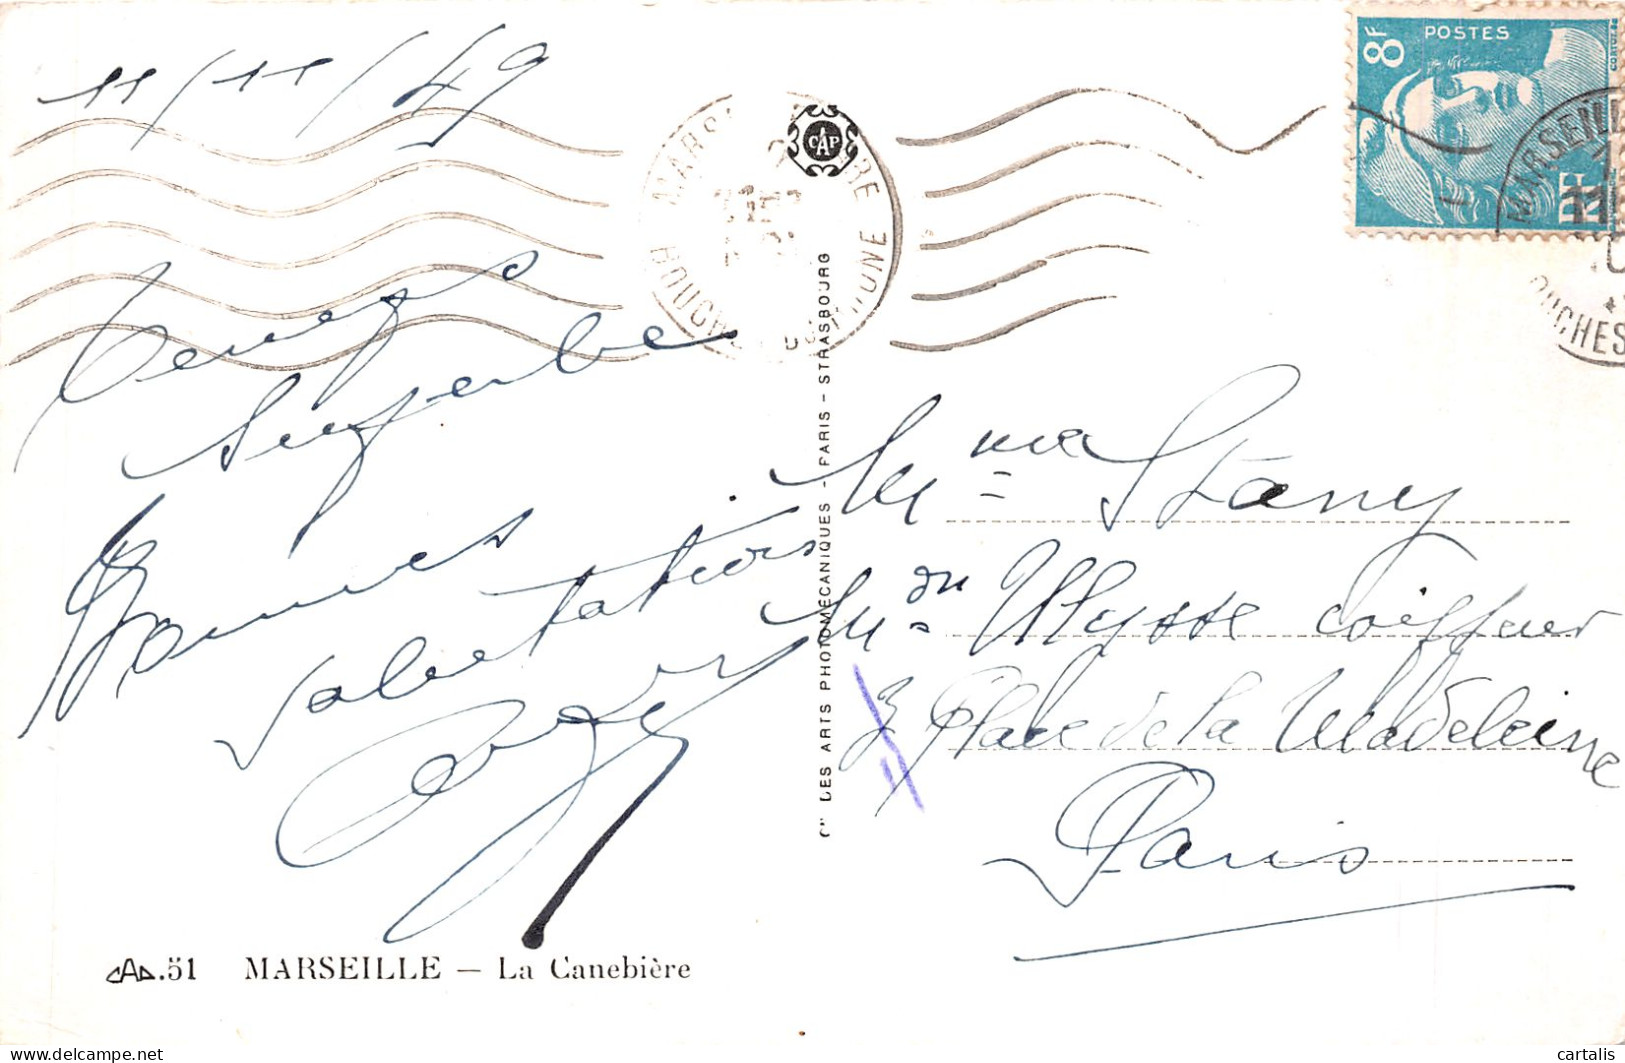 11/11/49
Temps
superbe
Bonnes
salutations
8F
POSTES
RF
MARSEILLE
BOUCHES DU RHONE
CAP
Cie DES ARTS PHOTOMÉCANIQUES - PARIS - STRASBOURG
Mme Stany
Mon Ulysse coiffeur
3 Place de la Madeleine
Paris
CAP.51 MARSEILLE — La Canebière
delcampe.net
cartalis